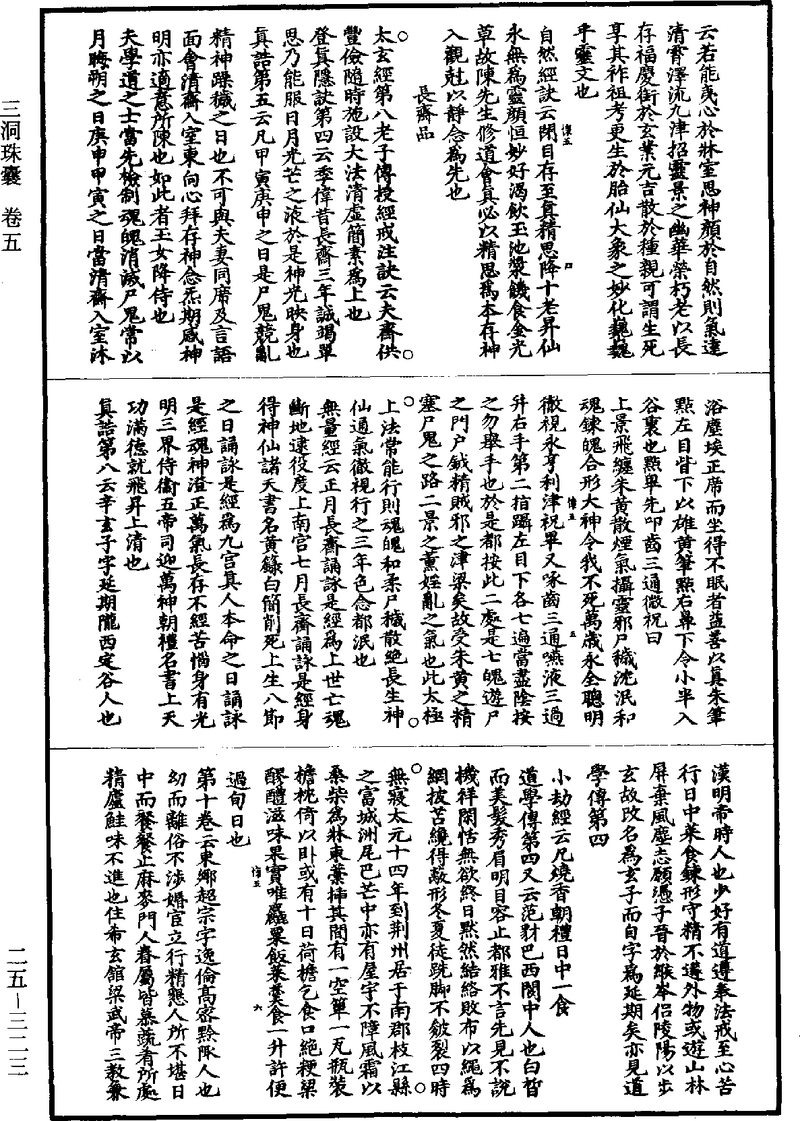 云若能夷心於牀室思神顏於自然則氣達
清霄澤流九津招靈景之幽華榮朽老以長
存福慶銜於玄業元吉散於種親可謂生死
享其祚祖考更生於胎仙大象之妙化巍巍
乎靈文也
自然經訣云閉目存至真精思降十老昇仙
永無為靈顏恒妙好渴飲玉池漿饑食金光
草故陳先生修道會真必以精思為本存神
入觀尅以靜念為先也
長齋品
太玄經第八老子傳授經戒注訣云夫齋供
豐儉隨時施設大法清虛簡素為上也
登真隱訣第四云季偉昔長齋三年誠竭單
思乃能服日月光芒之液於是神光映身也
真誥第五云凡甲寅庚申之日是尸鬼競亂
精神躁穢之日也不可與夫妻同席及言語
面會清齋入室東向心拜存神念炁期感神
明亦適意所陳也如此者玉女降侍也
夫學道之士當先檢制魂魄消滅尸鬼常以
月晦朔之日庚申甲寅之日當清齋入室沐
浴塵埃正席而坐得不眠者益善以真朱筆
點左目眥下以雄黃筆點右鼻下令小半入
谷裏也點畢先叩齒三通微祝曰
上景飛纏朱黃散煙氣攝靈邪尸穢沈泯和
魂鍊魄合形大神令我不死萬歲永全聰明
徹視永亨利津祝畢又啄齒三通嚥液三過
并右手第二指躡左目下各七遍當盡陰按
之勿舉手也於是都按此二處是七魄遊尸
之門戶鉞精賊邪之津梁矣故受朱黃之精
塞尸鬼之路二景之薰婬亂之氣也此太極
上法常能行則魂魄和柔尸穢散絕長生神
仙通氣徹視行之三年色念都泯也
無量經云正月長齋誦詠是經為上世亡魂
斷地逮役度上南宮七月長齋誦詠是經身
得神仙諸天書名黃籙白簡削死上生八節
之日誦詠是經為九宮真人本命之日誦詠
是經魂神澄正萬氣長存不經苦惱身有光
明三界侍衛五帝司迎萬神朝禮名書上天
功滿德就飛昇上清也
真誥第八云辛玄子字延期隴西定谷人也
漢明帝時人也少好有道遵奉法戒至心苦
行日中菜食鍊形守精不遘外物或遊山林
屏棄風塵志願憑子晉於緱岑侶陵陽以步
玄故改名為玄子而自字為延期矣亦見道
學傳第四
小劫經云凡燒香朝禮日中一食
道學傳第四又云范豺巴西閬中人也白皙
而美髮秀眉明目容止都雅不言先見不說
機祥閑恬無欲終日默然結絡敗布以繩為
網披苫繞得敵形冬夏徒跣腳不皴裂四時
無寢太元十四年到荆州居于南郡枝江縣
之富城洲尾巴芒中亦有屋宇不障風霜以
桑柴為牀東葉挿其間有一空簞一瓦瓶裝
檐枕倚以卧或有十日荷檐乞食口絕粳梁
醪醴滋味果實唯麤粟飯菜羹食一升許便
過旬日也
第十卷云東鄉超宗字逸倫高密黔陬人也
幼而離俗不涉婚宦立行精懇人所不堪日
中而餐餐止麻麥門人眷屬皆慕蔬肴所處
精廬鮭味不進也住希玄館梁武帝三教兼
三洞珠囊 卷五
二五—三二三